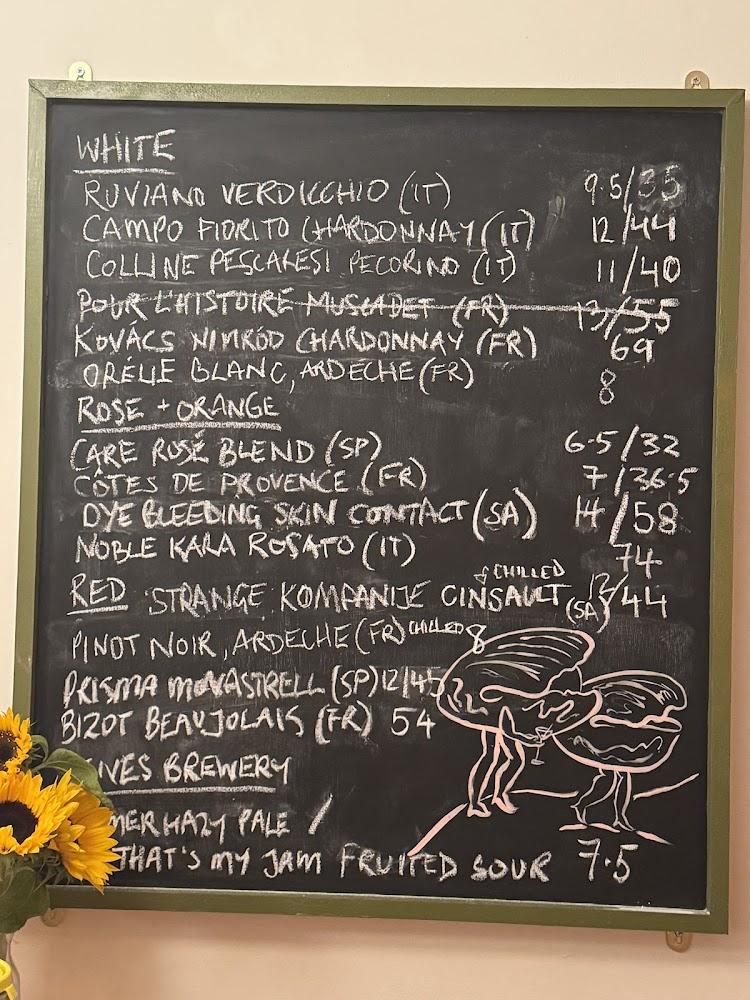 WHITE
RUVIANO VERDICCHIO (IT) 9.5/35
CAMPO FIORITO CHARDONNAY (IT) 12/44
COLLINE PESCARESI PECORINO (IT) 11/40
POUR L'HISTOIRE MUSCADET (FR) 13/55
KOVÁCS NIMRÓD CHARDONNAY (FR) 69
ORÉLIE BLANC, ARDECHE (FR) 8
ROSE + ORANGE
CARE ROSÉ BLEND (SP) 6.5/32
CÔTES DE PROVENCE (FR) 7/36.5
DYE BLEEDING SKIN CONTACT (SA) 14/58
NOBLE KARA ROSATO (IT) 74
RED STRANGE KOMPANIJE CINSAULT CHILLED (SA) 12/44
PINOT NOIR, ARDECHE (FR) CHILLED 8
PRISMA MONASTRELL (SP) 12/45
BIZOT BEAUJOLAIS (FR) 54
IVES BREWERY
MER HAZY PALE /
THAT'S MY JAM FRUITED SOUR 7.5